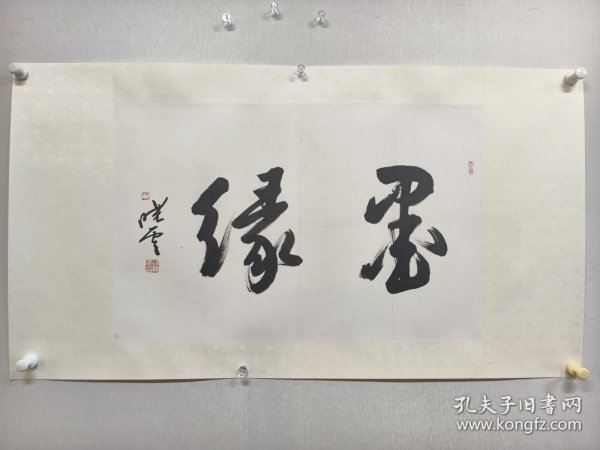 墨缘
晓云
孔夫子旧書网
www.kongfz.com